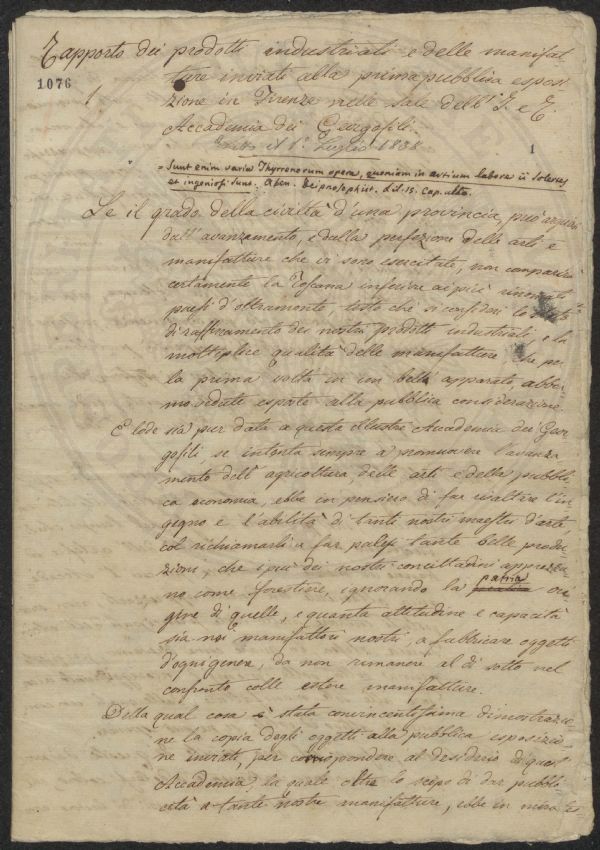 Rapporto dei prodotti industriali e delle manifat-
1076
ture inviati alla prima pubblica espo-
1.
zione in Firenze nelle Sale dell'I. e R.
Accademia dei Georgofili.
1
il 1° Luglio 1838
= Sunt enim varia Thyrrenorum opera, quoniam in artium labore ii Solertes
et ingeniosi sunt. Aten. Deipnosophist. Lib. 15. Cap. ulto.
Se il grado della civiltà d'una provincia, può arguirsi
dall'avanzamento, e dalla perfezione delle arti e
manifatture che vi sono esercitate, non comparirà
certamente la Toscana inferiore ai più rinomati
paesi d'oltramonte, tosto che si consideri lo stato
di raffinamento dei nostri prodotti industriali, e la
moltiplice qualità delle manifatture che per
la prima volta in un bell' apparato, abbia-
mo vedute esposte alla pubblica considerazione.
E lode sia pur data a questa illustre Accademia dei Geor-
gofili se intenta sempre a promuovere l'avanza-
mento dell' agricoltura, delle arti e della pubbli-
ca economia, ebbe in pensiero di far risaltare l'in-
gegno e l'abilità di tanti nostri maestri d'arte
col richiamarli a far palesi tante belle produ-
zioni, che i più dei nostri concittadini apprezza-
no come forestiere, ignorando la patria ori-
gine di quelle, e quanta attitudine e capacità
sia nei manifattori nostri, a fabbricare oggetti
d'ogni genere, da non rimanere al di sotto nel
confronto colle estere manifatture.
Della qual cosa è stata convincentissima dimostrazio-
ne la copia degli oggetti alla pubblica esposizio-
ne inviati, per corrispondere al desiderio di quest'
Accademia la quale oltre lo scopo di dar pubbli-
cità a tante nostre manifatture, ebbe in mira